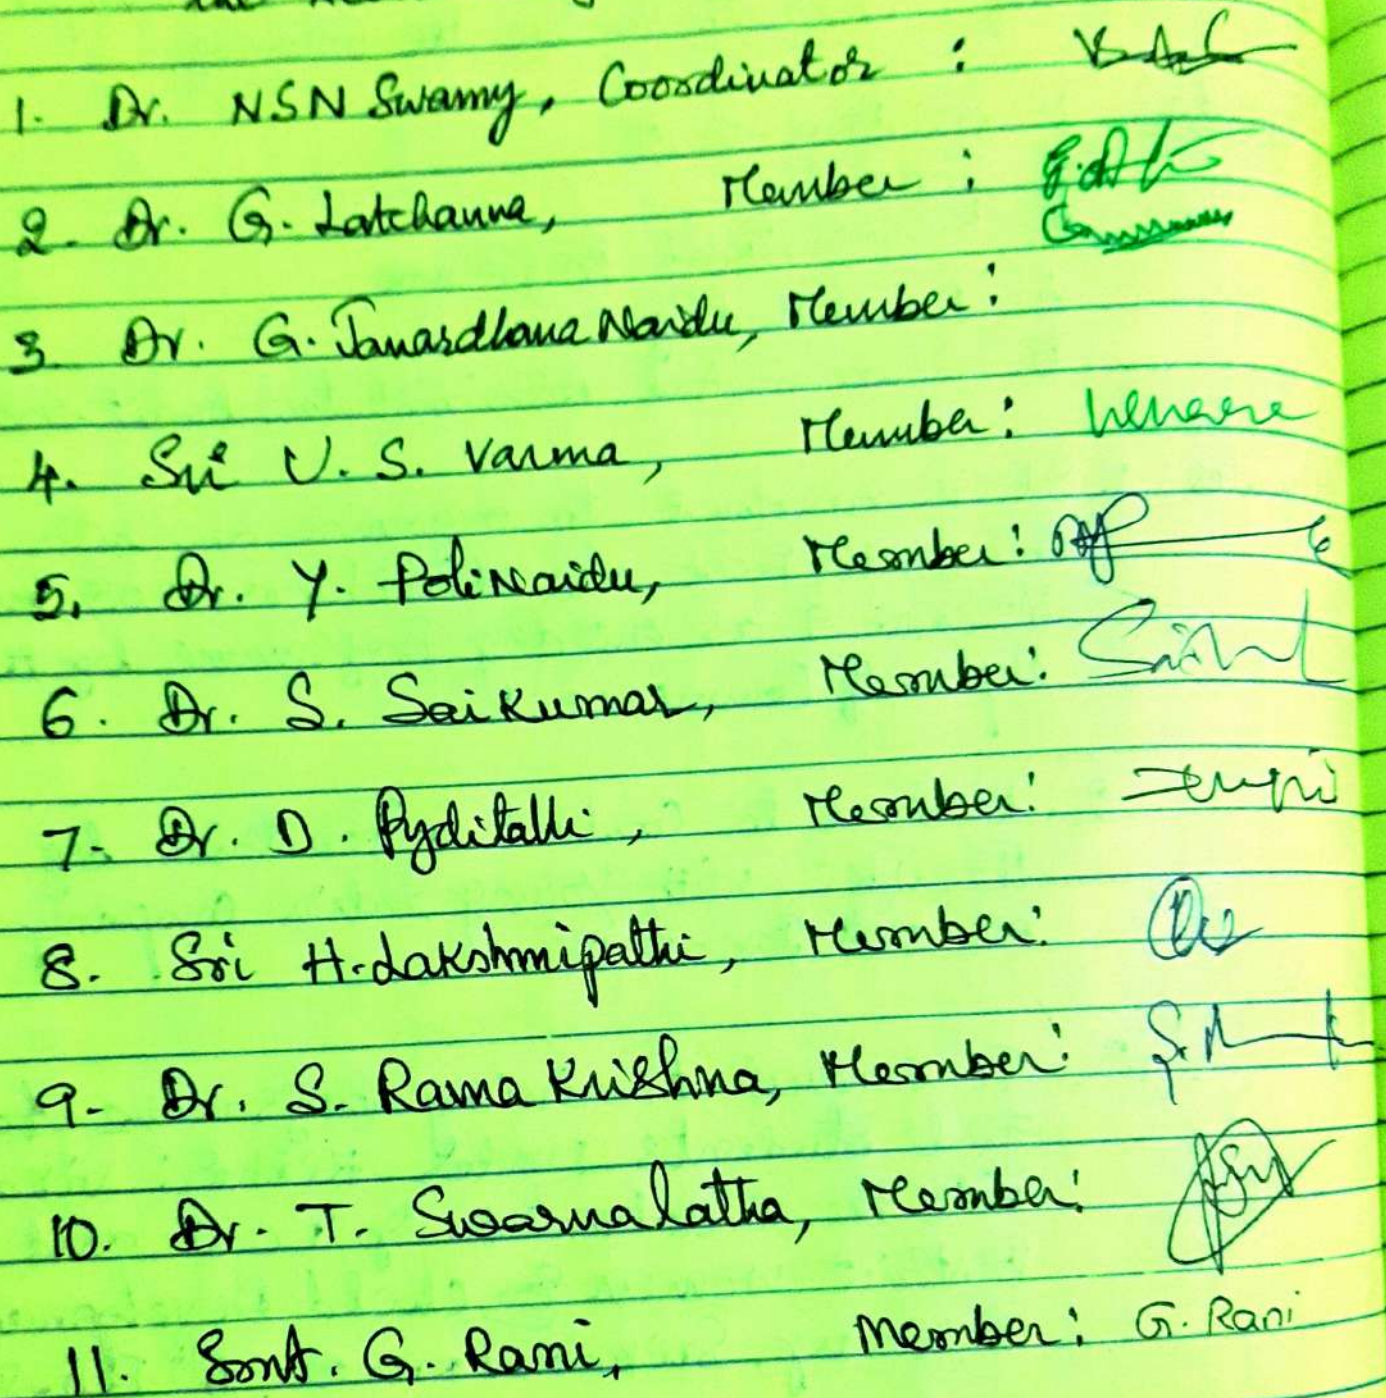 1. Dr. NSN Swamy, Coordinator :
2. Dr. G. Latchanna, Member :
3. Dr. G. Janardhana Naidu, Member :
4. Sri U. S. Varma, Member :
5. Dr. Y. Poli Naidu, Member :
6. Dr. S. Sai Kumar, Member :
7. Dr. D. Pyditalli, Member :
8. Sri H. Lakshmipathi, Member :
9. Dr. S. Rama Krishna, Member :
10. Dr. T. Swarnalatha, Member :
11. Smt. G. Rani, Member : G. Rani